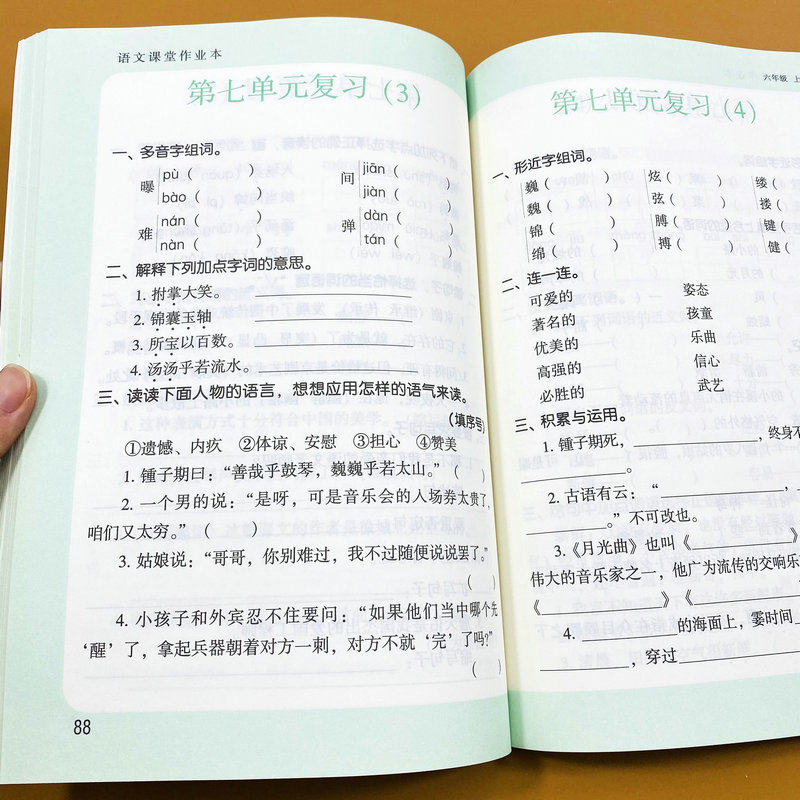 语文课堂作业本
第七单元复习（3）
一、多音字组词。
曝 pù（ ） 间 jiān（ ）
bào（ ） jiàn（ ）
难 nán（ ） 弹 dàn（ ）
nàn（ ） tán（ ）
二、解释下列加点字词的意思。
1. 拊掌大笑。
2. 锦囊玉轴
3. 所宝以百数。
4. 汤汤乎若流水。
三、读读下面人物的语言，想想应用怎样的语气来读。
（填序号）
①遗憾、内疚 ②体谅、安慰 ③担心 ④赞美
1. 锺子期曰：“善哉乎鼓琴，巍巍乎若太山。”（ ）
2. 一个男的说：“是呀，可是音乐会的入场券太贵了，
咱们又太穷。”（ ）
3. 姑娘说：“哥哥，你别难过，我不过随便说说罢了。”
（ ）
4. 小孩子和外宾忍不住要问：“如果他们当中哪个先
‘醒’了，拿起兵器朝着对方一刺，对方不就‘完’了吗？”
（ ）
88
六年级 上
第七单元复习（4）
一、形近字组词。
巍（ ） 炫（ ） 缕（
魏（ ） 弦（ ） 搂（
锦（ ） 膊（ ） 键（
绵（ ） 搏（ ） 健（
二、连一连。
可爱的 姿态
著名的 孩童
优美的 乐曲
高强的 信心
必胜的 武艺
三、积累与运用。
1. 锺子期死，________，终身不
________。
2. 古语有云：“________，
________。”不可改也。
3.《月光曲》也叫《________
伟大的音乐家之一，他广为流传的交响乐
《________》《________》《
4. ________的海面上，霎时间
________，穿过________